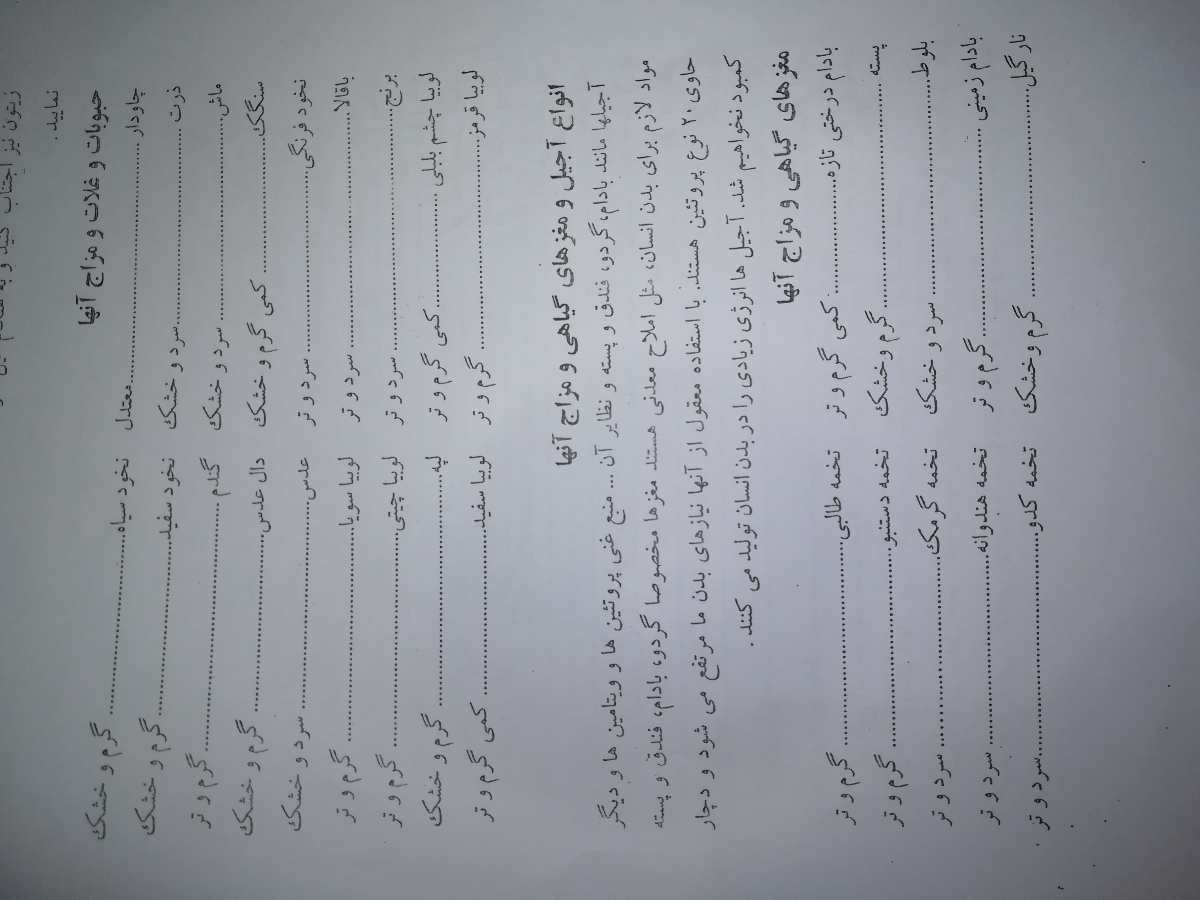 زیتون نیز اجتناب کنید و به
نمایید.
حبوبات و غلات و مزاج آنها
چاودار ........ معتدل نخود سیاه ........ گرم و خشک
ذرت ........ سرد و خشک نخود سفید ........ گرم و خشک
ماش ........ سرد و خشک گندم ........ گرم و تر
سنگک ........ کمی گرم و خشک دال عدس ........ گرم و خشک
نخود فرنگی ........ سرد و تر عدس ........ سرد و خشک
باقالا ........ سرد و تر لوبیا سویا ........ گرم و تر
برنج ........ سرد و تر لوبیا چیتی ........ گرم و تر
لوبیا چشم بلبلی ........ کمی گرم و تر لپه ........ گرم و خشک
لوبیا قرمز ........ گرم و تر لوبیا سفید ........ کمی گرم و تر
انواع آجیل و مغزهای گیاهی و مزاج آنها
آجیلها مانند بادام، گردو، فندق و پسته و نظایر آن ... منبع غنی پروتئین ها و ویتامین ها و دیگر
مواد لازم برای بدن انسان، مثل املاح معدنی هستند مغزها مخصوصا گردو، بادام، فندق و پسته
حاوی ۲۰ نوع پروتئین هستند. با استفاده معقول از آنها نیازهای بدن ما مرتفع می شود و دچار
کمبود نخواهیم شد. آجیل ها انرژی زیادی را در بدن انسان تولید می کنند.
مغزهای گیاهی و مزاج آنها
بادام درختی تازه ........ کمی گرم و تر تخمه طالبی ........ گرم و تر
پسته ........ گرم و خشک تخمه دستنبو ........ گرم و تر
بلوط ........ سرد و خشک تخمه گرمک ........ سرد و تر
بادام زمینی ........ گرم و تر تخمه هندوانه ........ سرد و تر
نارگیل ........ گرم و خشک تخمه کدو ........ سرد و تر